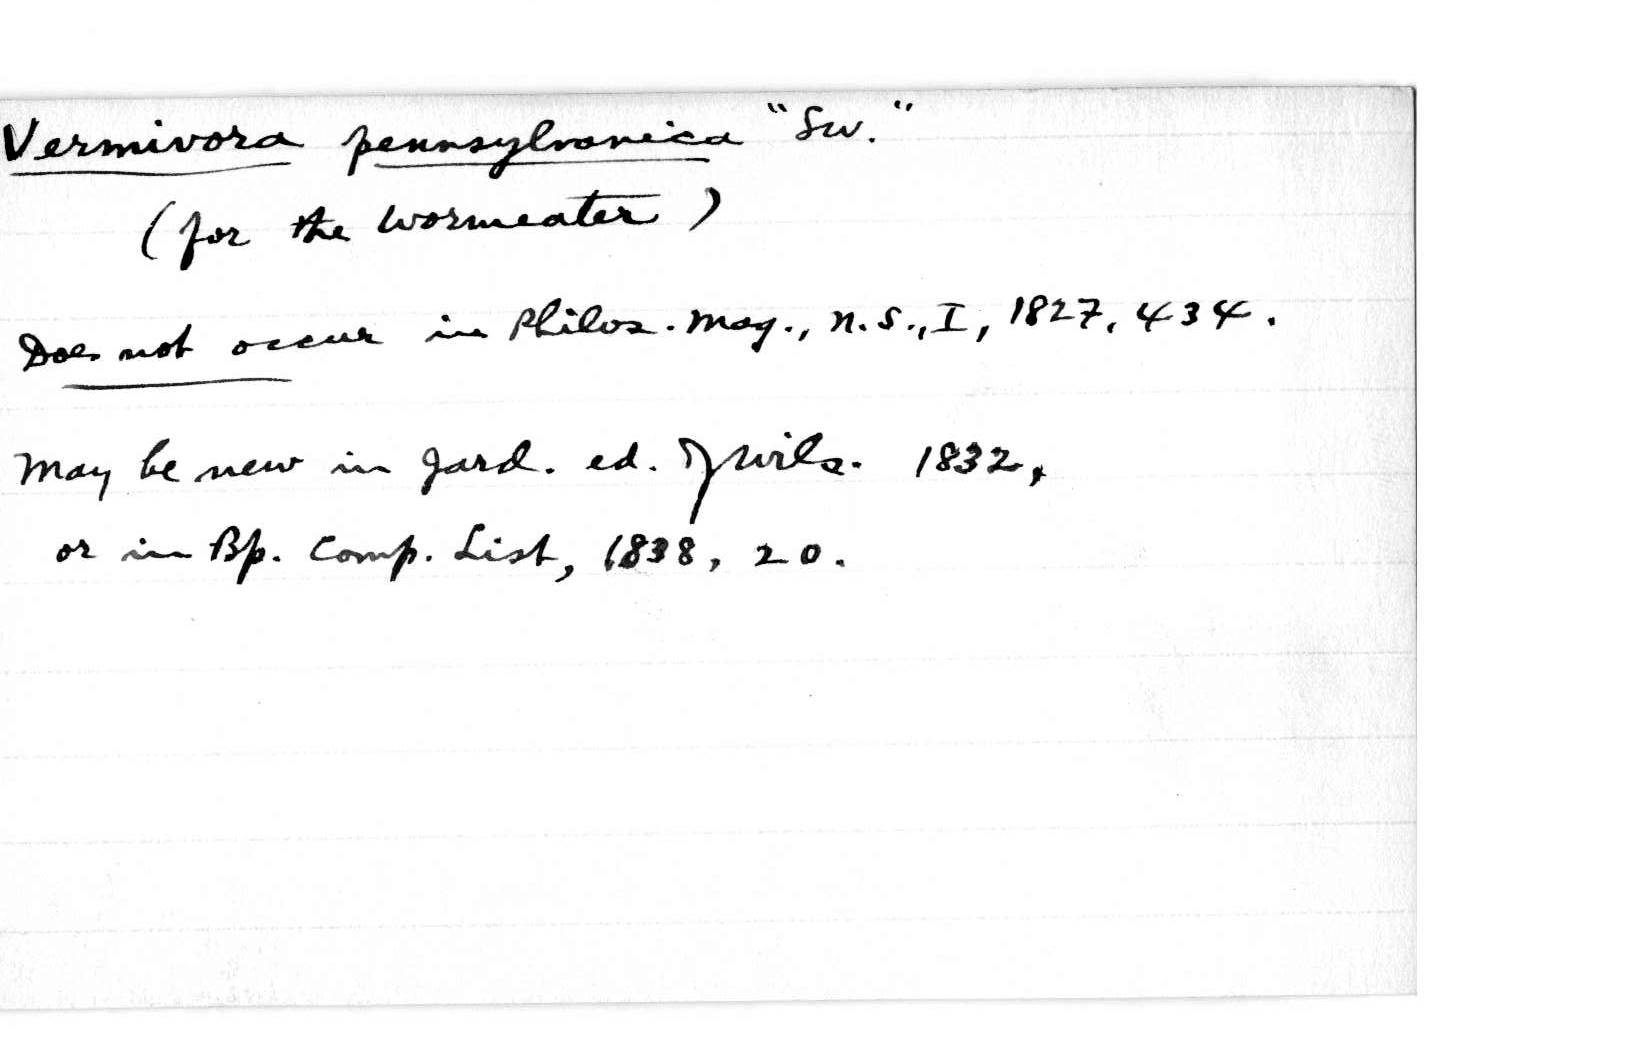 Vermivora pennsylvanica "Sw."
(for the wormeater)
Does not occur in Philos. Mag., n.s., I, 1827, 434.
May be new in Jard. ed. of Wils. 1832,
or in Bp. Comp. List, 1838, 20.